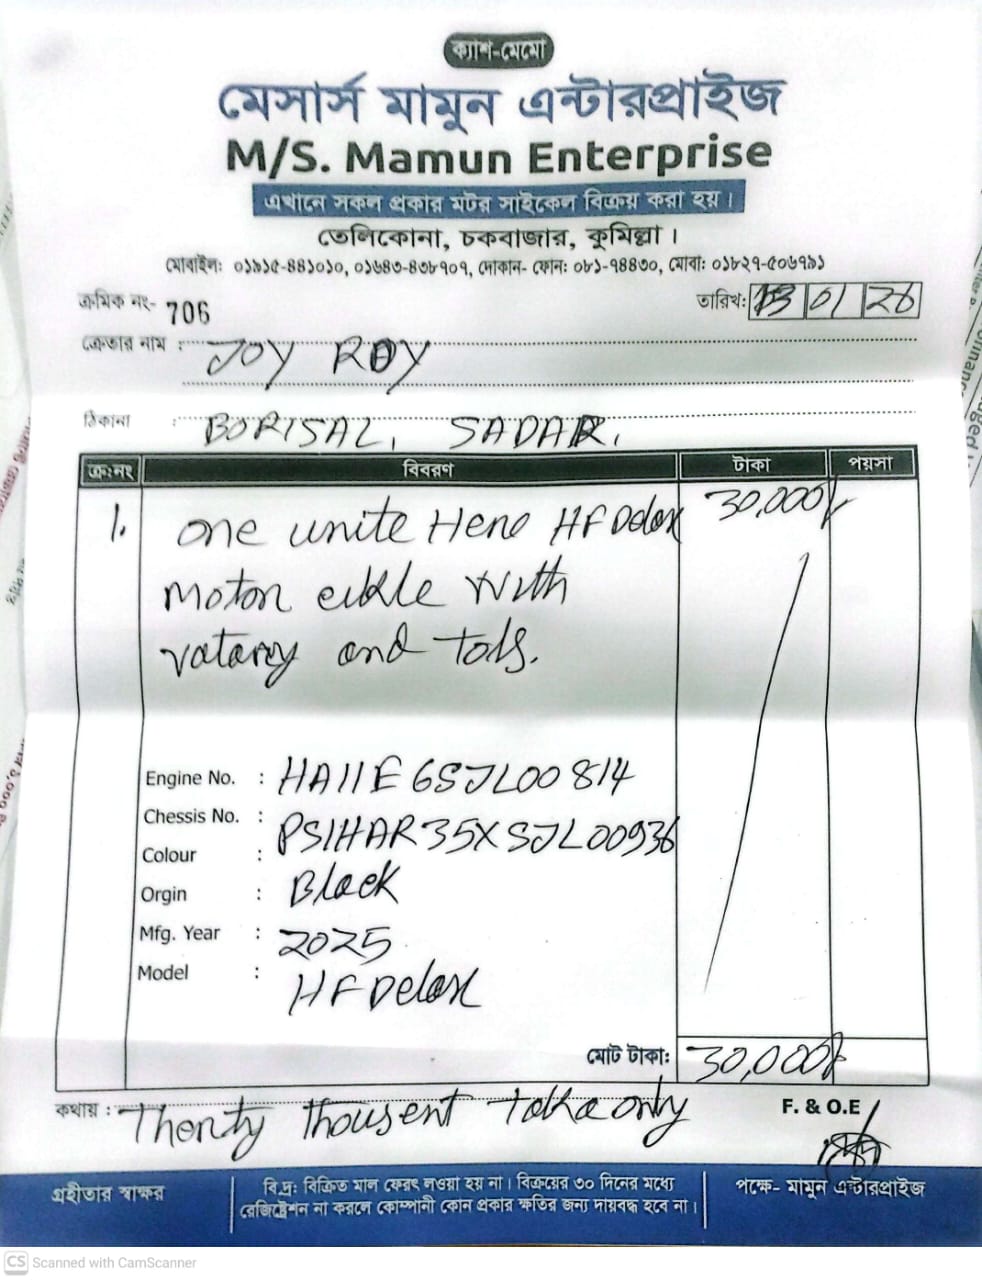 ক্যাশ-মেমো
মেসার্স মামুন এন্টারপ্রাইজ
M/S. Mamun Enterprise
এখানে সকল প্রকার মটর সাইকেল বিক্রয় করা হয়।
তেলিকোনা, চকবাজার, কুমিল্লা।
মোবাইল: ০১৯১৫-৪৪১০১০, ০১৬৪৩-৪৩৮৭০৭, দোকান- ফোন: ০৮১-৭৪৪৩০, মোবা: ০১৮২৭-৫০৬৭৯১
ক্রমিক নং- 706 তারিখ: 13 01 26
ক্রেতার নাম : JOY ROY
ঠিকানা : BORISAL, SADAR.
ক্র:নং বিবরণ টাকা পয়সা
1. one unite Hero HF Delox 30,000/-
Motor cikle with
vatary and tols.
Engine No. : HA11E6SJL00814
Chessis No. : PS1HAR35XSJL00936
Colour : Black
Orgin :
Mfg. Year : 2025
Model : HF Delox
মোট টাকা: 30,000/-
কথায় : Thorty thousent taka only F. & O.E
গ্রহীতার স্বাক্ষর
বি.দ্র: বিক্রিত মাল ফেরৎ লওয়া হয় না। বিক্রয়ের ৩০ দিনের মধ্যে
রেজিষ্ট্রেশন না করলে কোম্পানী কোন প্রকার ক্ষতির জন্য দায়বদ্ধ হবে না।
পক্ষে- মামুন এন্টারপ্রাইজ
CS Scanned with CamScanner